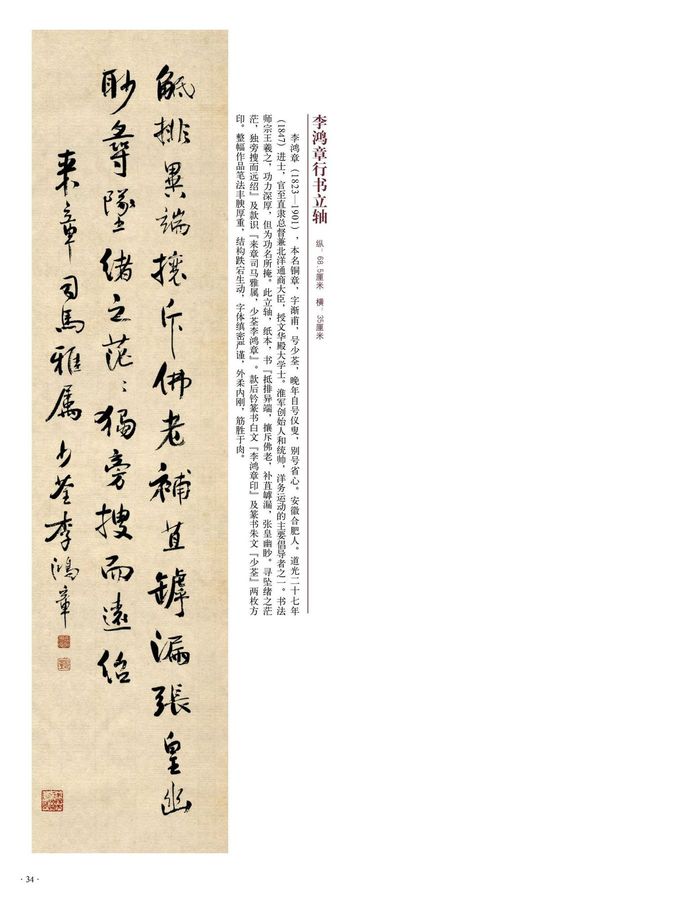 李鸿章行书立轴
纵：68.5厘米 横：35厘米
李鸿章（1823—1901），本名铜章，字渐甫，号少荃，晚年自号仪叟，别号省心。安徽合肥人。道光二十七年
（1847）进士，官至直隶总督兼北洋通商大臣，授文华殿大学士。淮军创始人和统帅，洋务运动的主要倡导者之一。书法
师宗王羲之，功力深厚，但为功名所掩。此立轴，纸本，书『抵排异端，攘斥佛老，补苴罅漏，张皇幽眇。寻坠绪之茫
茫，独旁搜而远绍』及款识『来章司马雅属，少荃李鸿章』。款后钤篆书白文『李鸿章印』及篆书朱文『少荃』两枚方
印。整幅作品笔法丰腴厚重，结构跌宕生动，字体缜密严谨，外柔内刚，筋胜于肉。
觝排異端攘斥佛老補苴罅漏張皇幽
眇尋墜緒之茫〻獨旁搜而遠紹
来章司馬雅属少荃李鴻章
· 34 ·